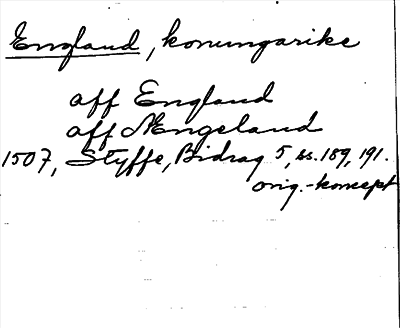 England, konungarike
aff England
aff Ængeland
1507, Styffe, Bidrag 5, ss. 189, 191.
orig.-koncept